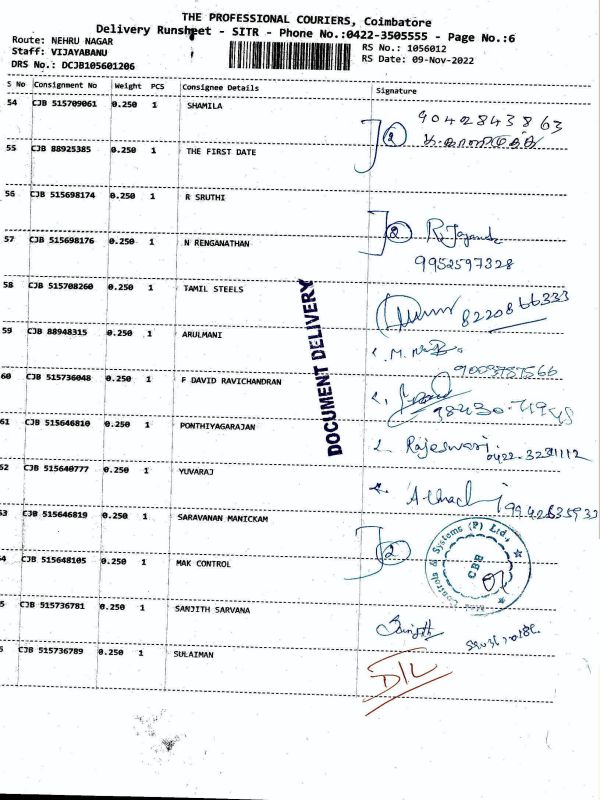 THE PROFESSIONAL COURIERS, Coimbatore
Delivery Runsheet - SITR - Phone No.:0422-3505555 - Page No.:6
Route: NEHRU NAGAR
Staff: VIJAYABANU
DRS No.: DCJB105601206
RS No.: 1056012
RS Date: 09-Nov-2022
S No Consignment No Weight PCS Consignee Details Signature
54 CJB 515709061 0.250 1 SHAMILA 9042843863
2
55 CJB 88925385 0.250 1 THE FIRST DATE
56 CJB 515698174 0.250 1 R SRUTHI
2
57 CJB 515698176 0.250 1 N RENGANATHAN
9952597328
58 CJB 515708260 0.250 1 TAMIL STEELS
8220866333
DOCUMENT DELIVERY
59 CJB 88948315 0.250 1 ARULMANI
60 CJB 515736048 0.250 1 F DAVID RAVICHANDRAN
61 CJB 515646810 0.250 1 PONTHIYAGARAJAN Rajeswari
62 CJB 515640777 0.250 1 YUVARAJ
9942835933
53 CJB 515646819 0.250 1 SARAVANAN MANICKAM
2
Controls & Systems (P) Ltd.,
CBE
54 CJB 515648105 0.250 1 MAK CONTROL
5 CJB 515736781 0.250 1 SANJITH SARVANA Sanjith
6 CJB 515736789 0.250 1 SULAIMAN D/L